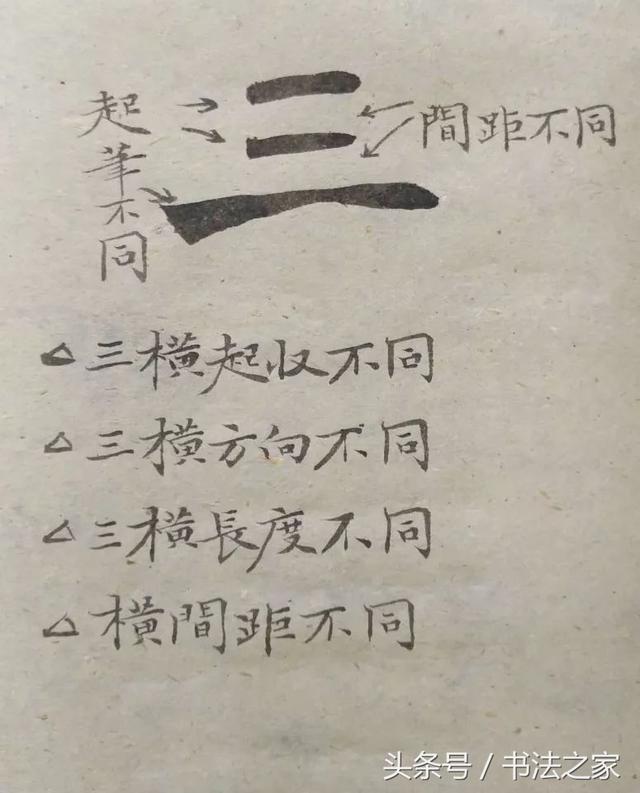 三
起筆不同
間距不同
△三橫起收不同
△三橫方向不同
△三橫長度不同
△橫間距不同
头条号 / 书法之家